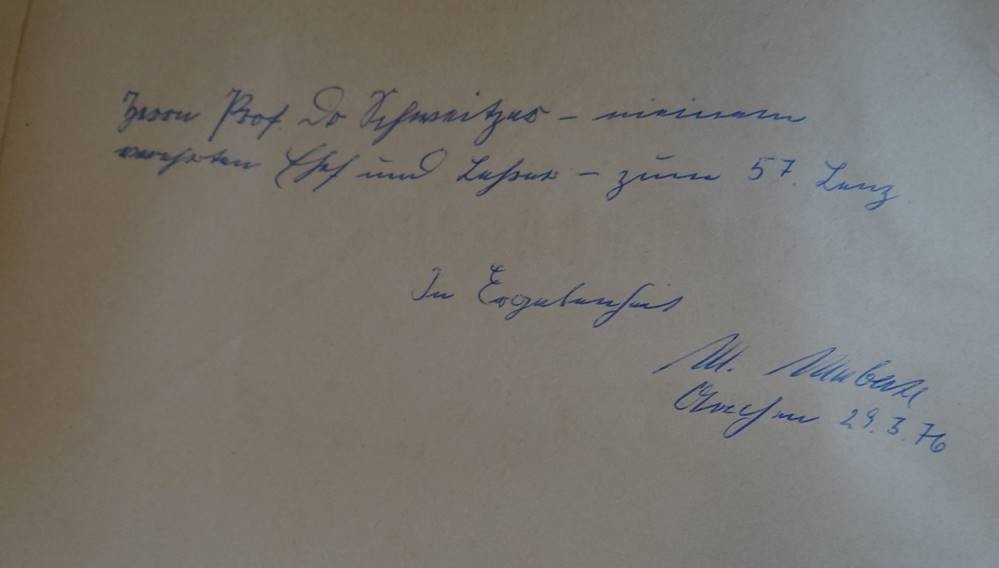 Herrn Prof. Dr Schweitzer – meinem
verehrten Chef und Lehrer – zum 57. Lenz
In Ergebenheit
M.
Aachen 29.3.76